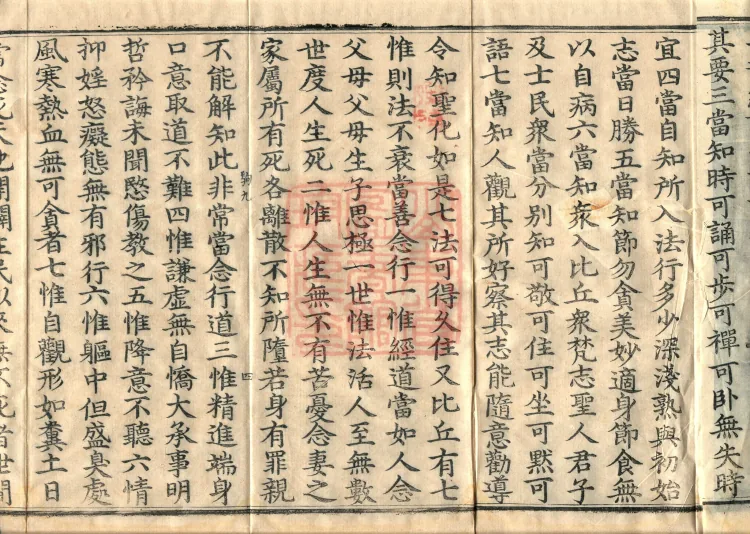 其要三當知時可誦可步可禪可卧無失時
宜四當自知所入法行多少深淺熟與初始
志當日勝五當知節勿貪美妙適身節食無
以自病六當知衆入比丘衆梵志聖人君子
及士民衆當分別知可敬可住可坐可默可
語七當知人觀其所好察其志能隨意勸導
令知聖化如是七法可得久住又比丘有七
惟則法不衰當善念行一惟經道當如人念
父母父母生子思極一世惟法活人至無數
世度人生死二惟人生無不有苦憂念妻之
家屬所有死各離散不知所墮若身有罪親
鞠九
四
不能解知此非常當念行道三惟精進端身
口意取道不難四惟謙虛無自憍大承事明
哲矜誨未聞愍傷教之五惟降意不聽六情
抑婬怒癡態無有邪行六惟軀中但盛臭處
風寒熱血無可貪者七惟自觀形如糞土日